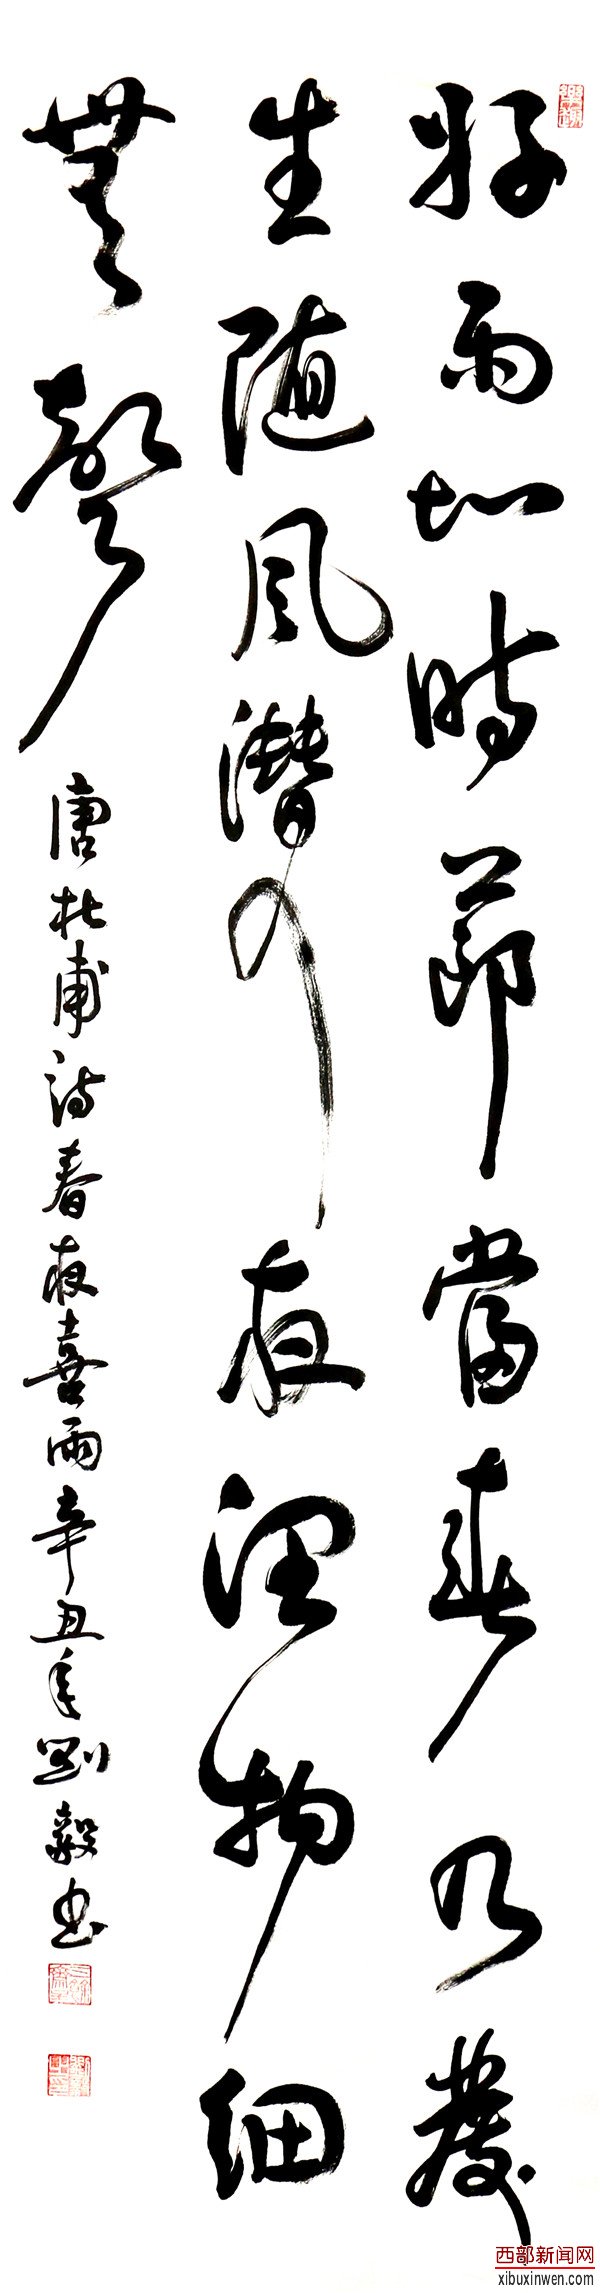 好雨知時節當春乃發
生随風潛入夜潤物細
無聲
唐杜甫詩春夜喜雨辛丑年劉毅書
西部新闻网
xibuxinwen.com